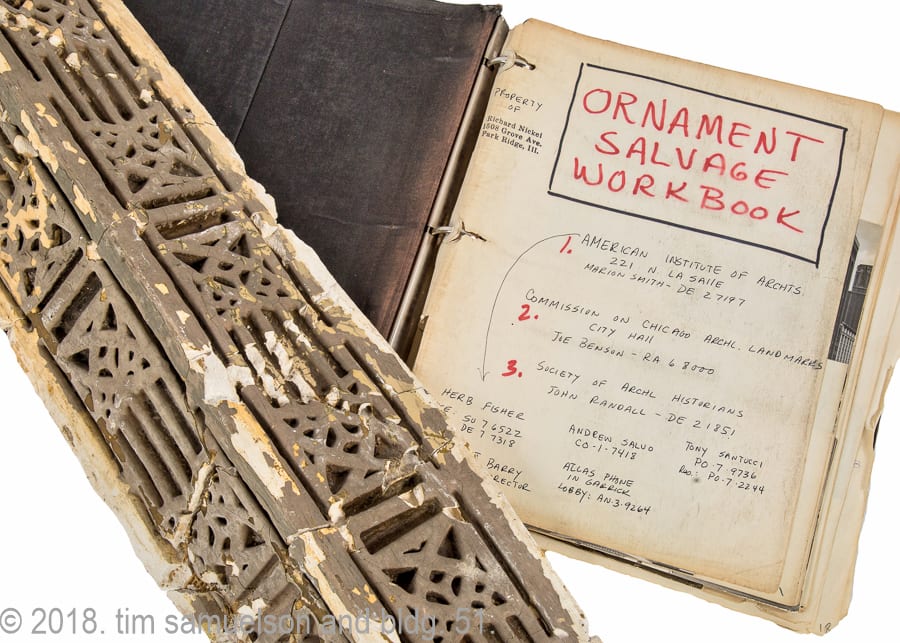 PROPERTY
OF
Richard Nickel
1508 Grove Ave.
Park Ridge, Ill.
ORNAMENT
SALVAGE
WORKBOOK
1. AMERICAN INSTITUTE OF ARCHTS
221 N. LA SALLE
MARION SMITH - DE 27197
2. COMMISSION ON CHICAGO ARCHL. LANDMARKS
CITY HALL
JOE BENSON - RA 68000
3. SOCIETY OF ARCHL HISTORIANS
JOHN RANDALL - DE 21851
HERB FISHER
SU 7 6522
DE 7 7318
BARRY
ANDREW SALVO
CO-1-7418
ATLAS PHONE
IN GARRICK
LOBBY: AN.3-9264
TONY SANTUCCI
PO-7-9736
RES: PO-7-2244
© 2018. tim samuelson and bldg. 51.